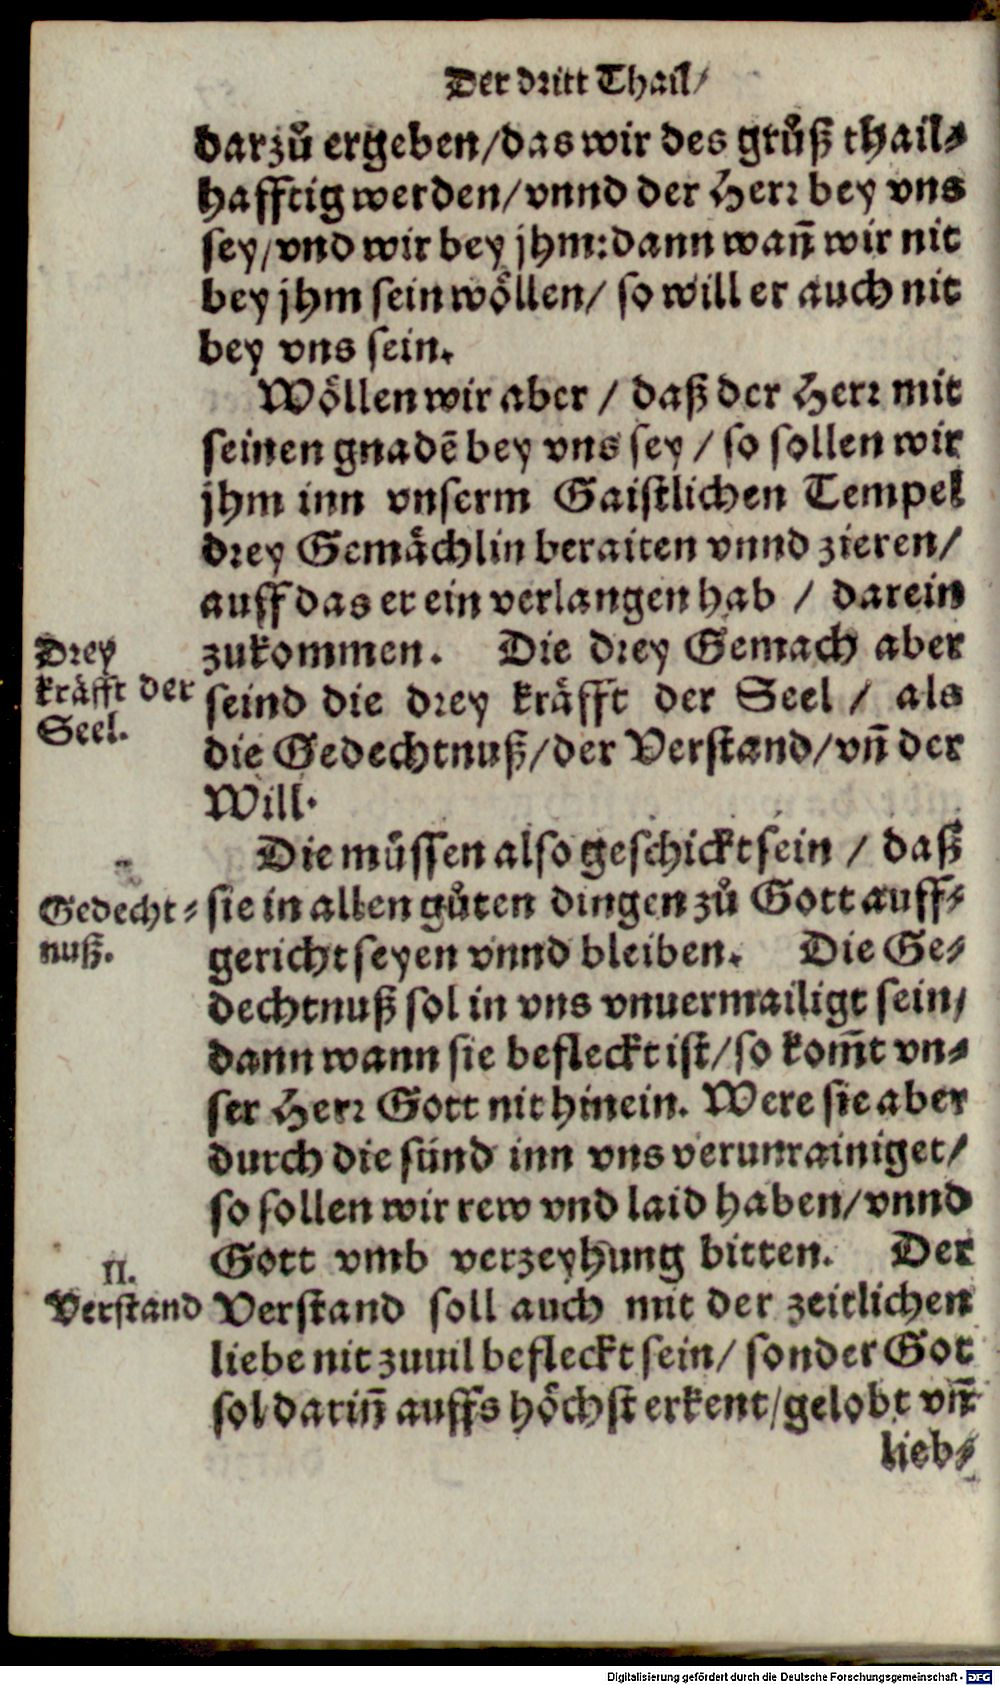 Der dritt Thail/
darzů ergeben/das wir des grůß thail⸗
hafftig werden/vnnd der Herr bey vns
sey/vnd wir bey jhm:dann wañ wir nit
bey jhm sein wöllen/ so will er auch nit
bey vns sein.
Wöllen wir aber / daß der Herr mit
seinen gnadẽ bey vns sey / so sollen wir
jhm inn vnserm Gaistlichen Tempel
drey Gemächlin beraiten vnnd zieren/
auff das er ein verlangen hab / darein
zukommen. Die drey Gemach aber
seind die drey kräfft der Seel / als
die Gedechtnuß/der Verstand/vñ der
Will.
Drey
kräfft der
Seel.
Die müssen also geschickt sein / daß
sie in allen gůten dingen zů Gott auff⸗
gericht seyen vnnd bleiben. Die Ge⸗
dechtnuß sol in vns vnuermailigt sein/
dann wann sie befleckt ist/so kom̃t vn⸗
ser Herr Gott nit hinein. Were sie aber
durch die sünd inn vns verunrainiget/
so sollen wir rew vnd laid haben/vnnd
Gott vmb verzeyhung bitten. Der
Verstand soll auch mit der zeitlichen
liebe nit zuuil befleckt sein/ sonder Got
sol dariñ auffs höchst erkent/gelobt vñ
lieb⸗
Gedecht⸗
nuß.
II.
Verstand
Digitalisierung gefördert durch die Deutsche Forschungsgemeinschaft - DFG